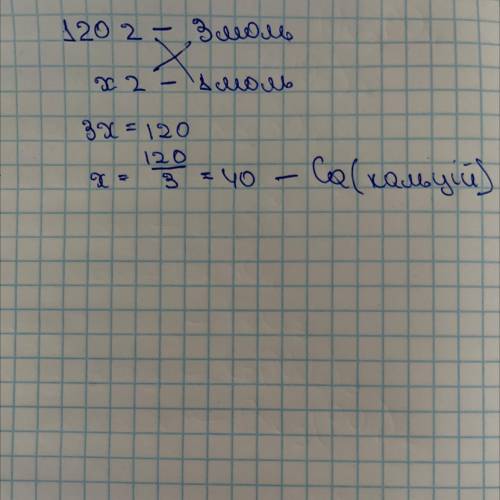 120 г — 3 моль
х г — 1 моль
3х = 120
х = 120/3 = 40 — Ca (кальцій)